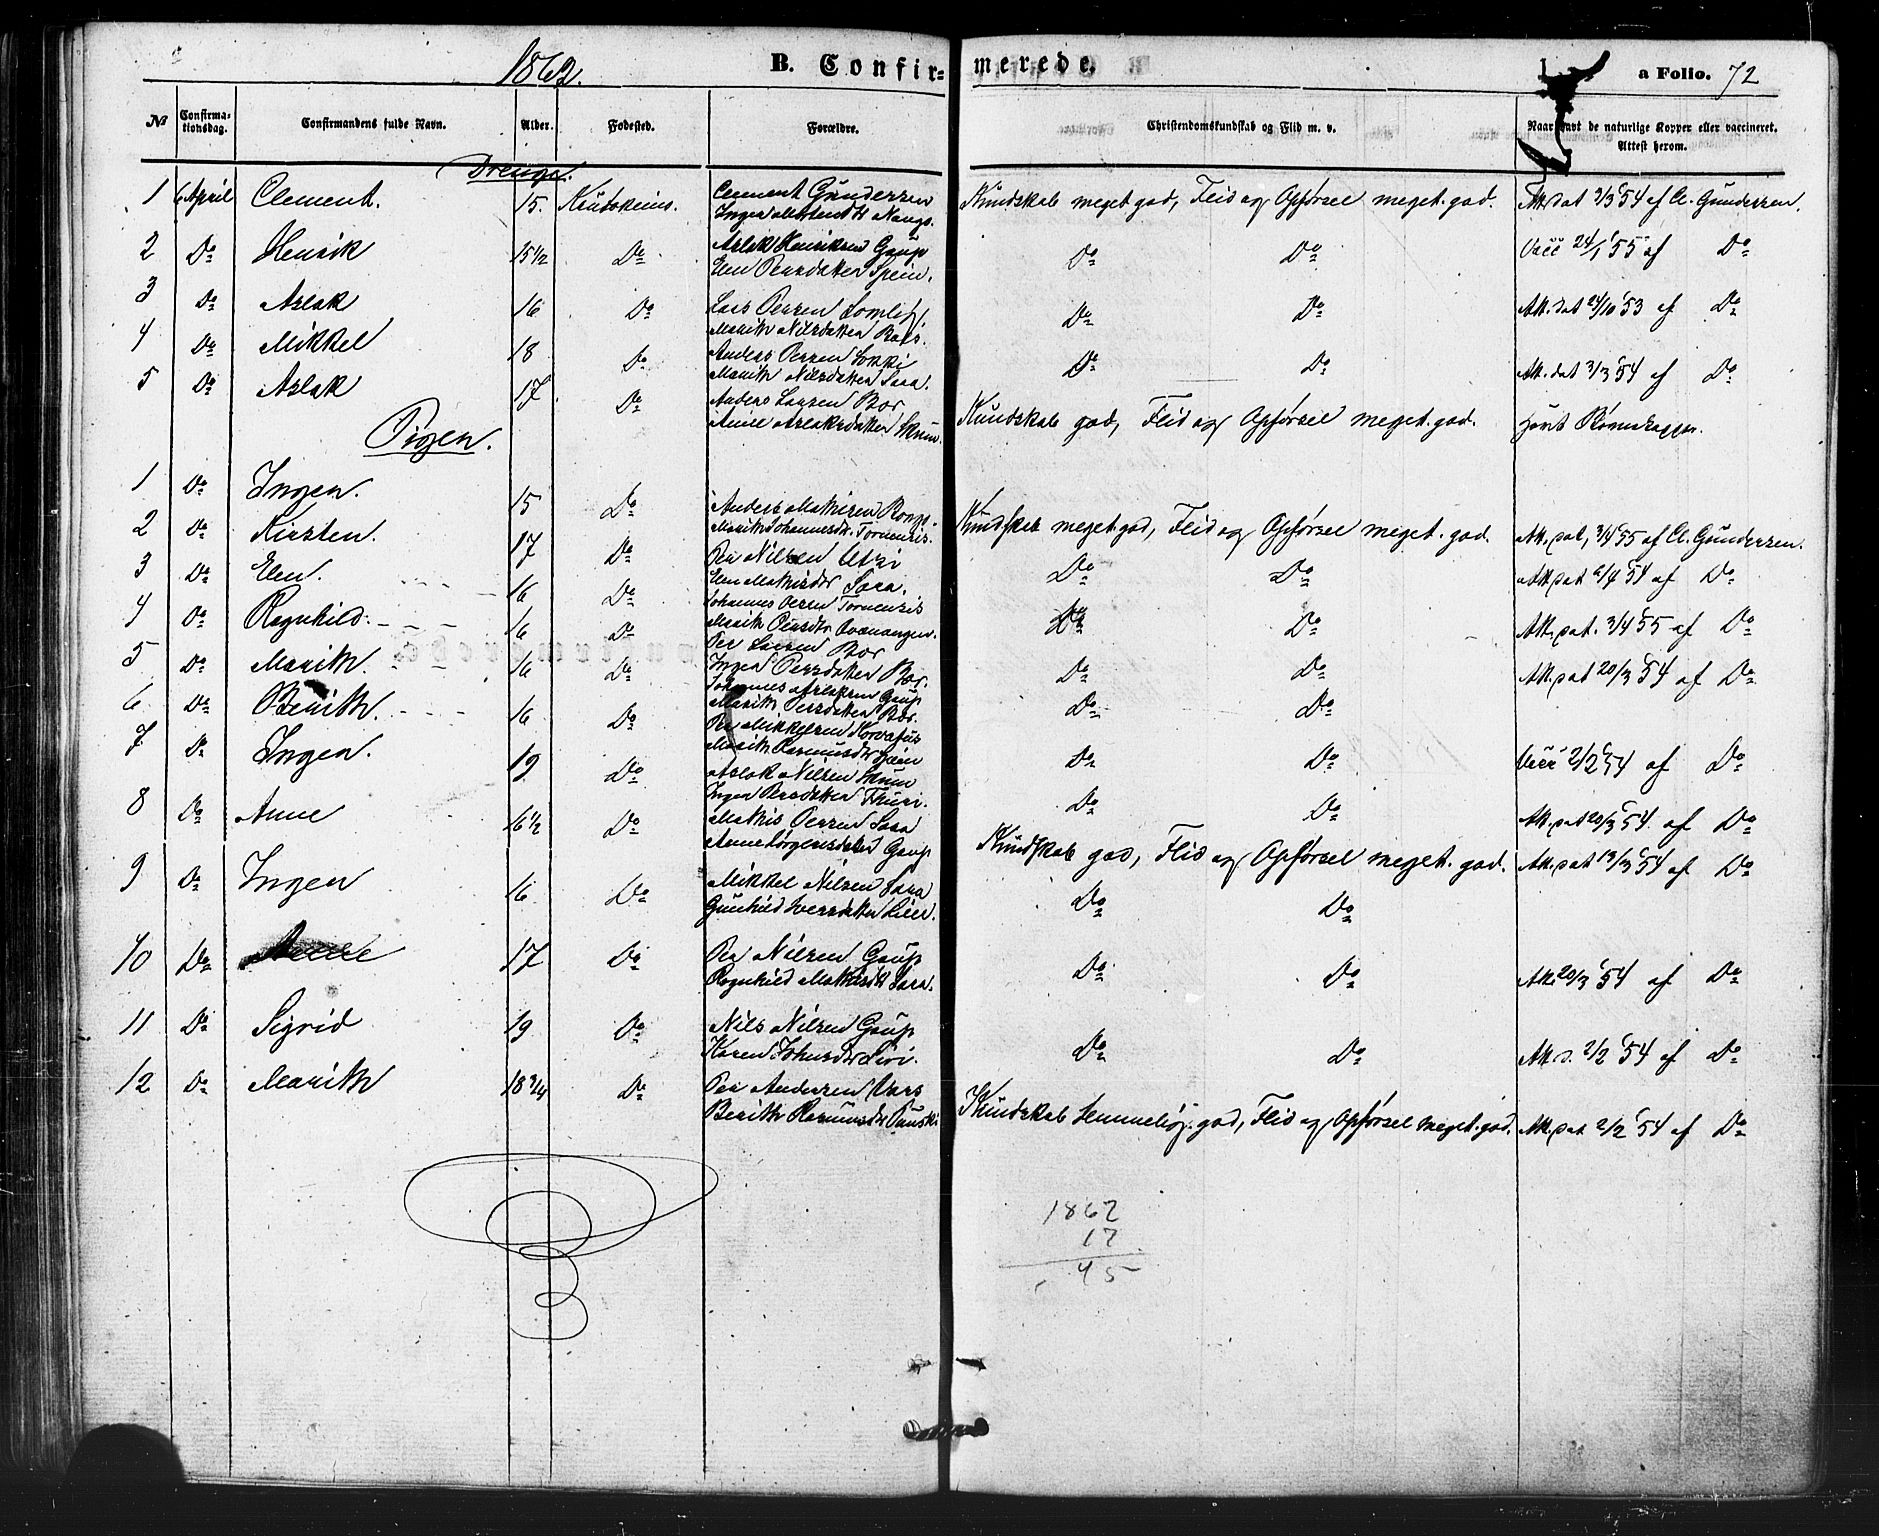 1862.
B. Confir-merede.
a Folio. 72
No Confirmationsdag. Confirmandens fulde Navn. Alder. Fødested. Forældre. Christendomskundskab og Flid m. v. Naar havt de naturlige Kopper eller vaccineret. Attest herom.
Drenge.
1 6 April Clement. 15. Kautokeino. Clement Gundersen Kundskab meget god, Flid og Opførsel meget god. Att. dat 3/3 54 af Cl. Gundersen.
2 Do Henrik 15 1/2 Do Aslak Henriksen Gaup Do Do Vacc 24/1 55 af Do
Elen Persdatter Spein.
3 Do Aslak 16 Do Lars Persen Do Do Att. dat 24/10 53 af Do
Marith Nilsdatter
4 Do Mikkel 18 Do Anders Persen Do Do Att. dat 3/3 54 af Do
Marith Nilsdatter Sara.
5 Do Aslak 17 Do Anders Larsen Bær Kundskab god, Flid og Opførsel meget god. havt Børnekopper.
Anne Aslaksdatter Skum.
Piger.
1 Do Ingen. 15 Do Anders Mathisen Kundskab meget god, Flid og Opførsel meget god. Att. dat, 3/4 55 af Cl. Gundersen.
Marith Johannesdt. Tornensis.
2 Do Kirsten. 17 Do Per Nilsen Utsi Do Do Att. dat 6/4 54 af Do
Elen Mathisdtr Sara.
3 Do Elen. 16 Do Johannes Persen Tornensis Do Do Att. dat. 3/4 55 af Do
Marith Persdtr Qvænangen.
4 Do Ragnhild. 16 Do Per Larsen Bær Do Do Att. dat 20/3 54 af Do
Ingen Persdatter Bær.
5 Do Marith. 16 Do Johannes Aslaksen Gaup Do Do
Marith Persdatter Bær.
6 Do Berith. 16 Do Per Mikkelsen Korvatus Do Do Vacc 2/2 54 af Do
Marith Rasmusdtr Spein
7 Do Ingen. 19 Do Aslak Nilsen Skum Do Do Att. dat 20/3 54 af Do
Ingen Persdatter Thuri.
8 Do Anne 16 1/2 Do Mathis Persen Sara Kundskab god, Flid og Opførsel meget god. Att. dat 13/3 54 af Do
Anne Jørgensdatter Gaup
9 Do Ingen 16 Do Mikkel Nilsen Sara Do Do
Gunhild Iversdatter
10 Do 17 Do Per Nilsen Gaup Do Do Att. 20/3 54 af Do
Ragnhild Mathisdt Sara.
11 Do Sigrid 19 Do Nils Nilsen Gaup Do Do Att. d. 2/2 54 af Do
Karen Johnsdtr Siri.
12 Do Marith 18 3/4 Do Per Andersen Vars Kundskab temmelig god, Flid og Opførsel meget god. Att. dat 2/2 54 af Do
Berith Rasmusdtr
1862
17
45